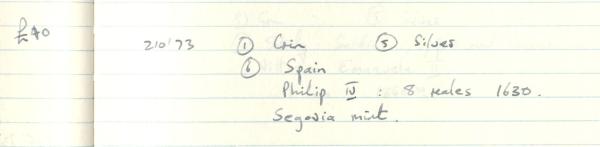 £40
210'73 ① Coin ⑤ Silver
⑥ Spain
Philip IV : 8 reales 1630.
Segovia mint.